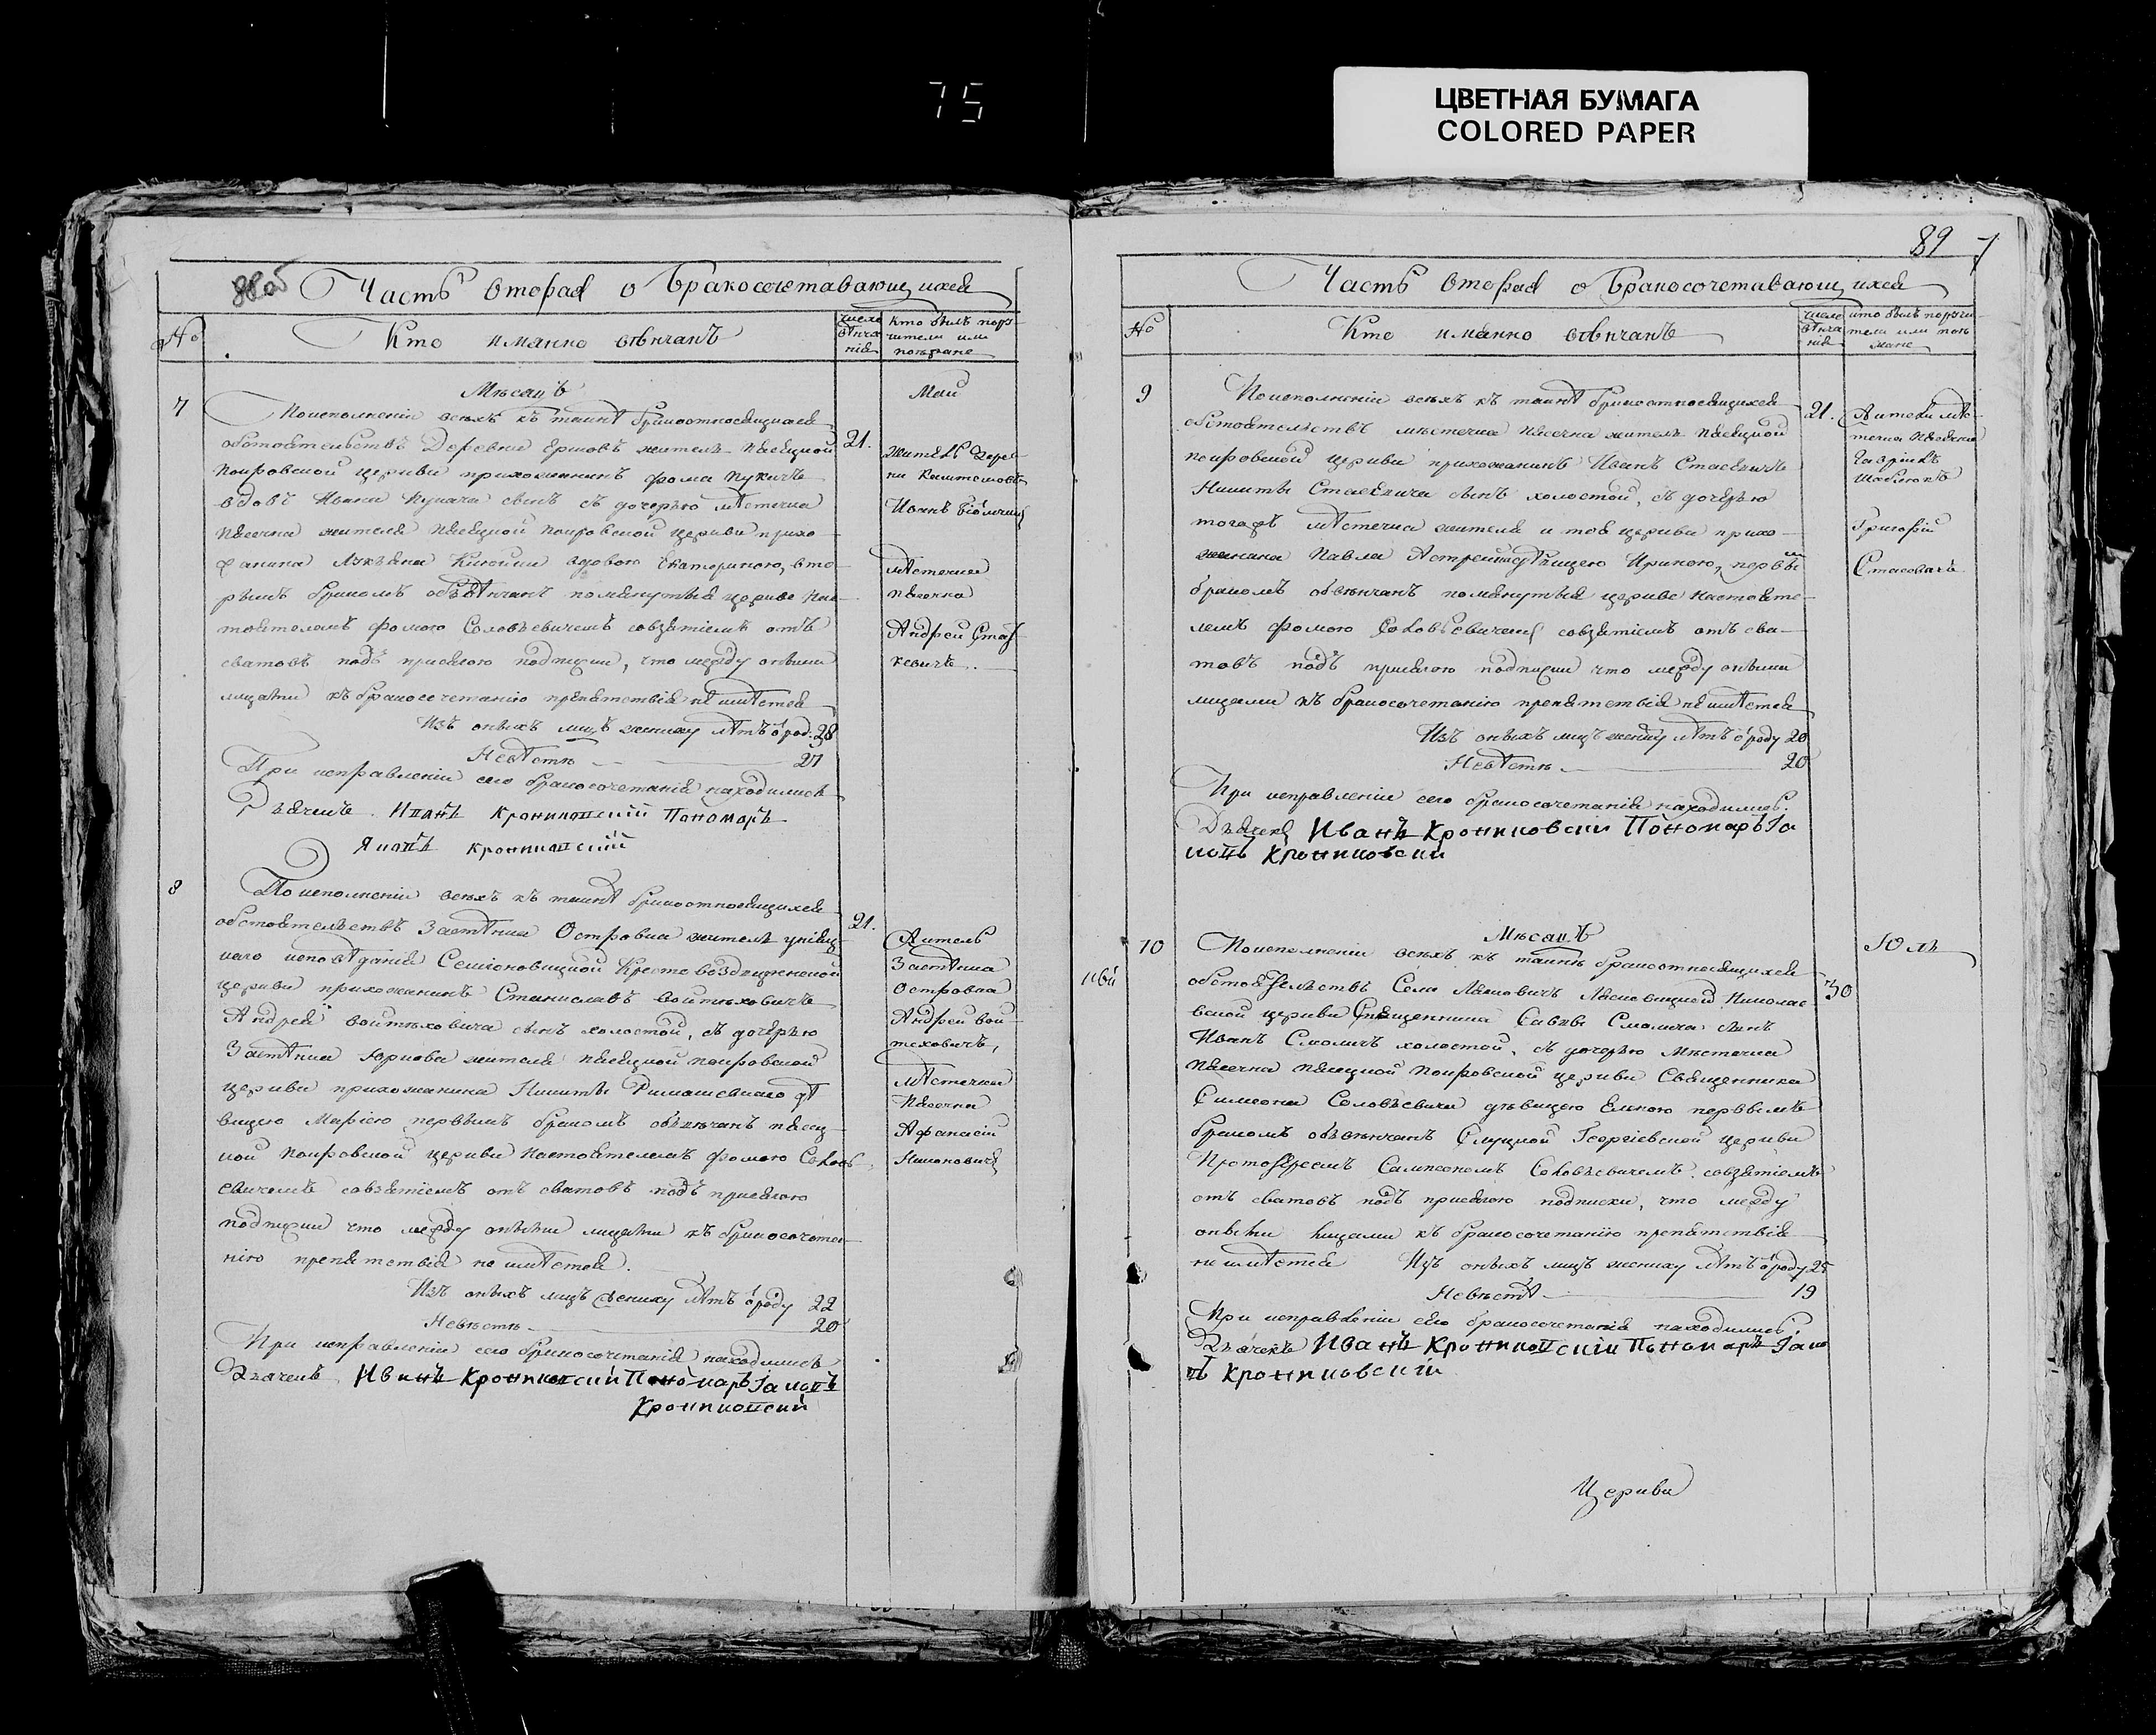 75
ЦВЕТНАЯ БУМАГА
COLORED PAPER
88об
Часть вторая о бракосочетавающихся
№
Кто имянно вѣнчанъ
число вѣнчанія
кто былъ поручители или поѣзжане
Мѣсацъ
Май
7
По исполненіи всѣхъ къ таинѣ брака относящихся
обстоятельствъ Деревни житель Пясецкой
Покровской церкви прихожанинъ Фома
вдовъ сынъ съ дочерью мѣстечка
Пясечна жителя Пясецкой Покровской церкви прихо-
жанина вдовою Екатериною, вто-
рымъ бракомъ обвѣнчанъ помянутыя церкве нас-
тоятелемъ Фомою Соловьевичемъ со взятіемъ отъ
сватовъ подъ присягою подписки, что между оными
лицами къ бракосочетанію препятствія не имѣется
Изъ оныхъ лицъ жениху лѣтъ ѿ род. 28
Невѣстѣ 27
При исправленіи сего бракосочетанія находились
Дьячекъ Иванъ Крониковскій Пономарь
Якопъ Крониковскій
21.
житель дерев-
ни
Иванъ
мѣстечка
Пясечна
Андрей Стас-
кевичъ
8
По исполненіи всѣхъ къ таинѣ брака относящихся
обстоятельствъ Застѣнка Островка житель уніац-
каго исповѣданія Крестовоздвиженской
церкви прихожанинъ Станиславъ Войтѣховичъ
Андрея Войтѣховича сынъ холостой, съ дочерью
Застѣнка жителя Пясецкой Покровской
церкви прихожанина Никиты Римашевскаго дѣ-
вицею Маріею первымъ бракомъ обвѣнчанъ Пясец-
кой Покровской церкви настоятелемъ Фомою Соловь-
евичемъ со взятіемъ отъ сватовъ подъ присягою
подписки что между оными лицами къ бракосочета-
нію препятствія не имѣется.
Изъ оныхъ лицъ жениху лѣтъ ѿ роду 22
Невѣстѣ 20
При исправленіи сего бракосочетанія находились
Дьячекъ Иванъ Крониковскій Пономарь Іакопъ
Крониковскій
21.
Житель
Застѣнка
Островка
Андрей Вой-
теховичъ,
мѣстечка
Пясечна
Афанасій
Никоновичъ
89
Часть вторая о бракосочетавающихся
№
Кто имянно вѣнчанъ
число вѣнчанія
кто былъ поручители или поѣзжане
9
По исполненіи всѣхъ къ таинѣ брака относящихся
обстоятельствъ мѣстечка Пясечна житель Пясецкой
Покровской церкви прихожанинъ Иванъ Стасевичъ
Никиты Стасевича сынъ холостой, съ дочерью
тогожъ мѣстечка жителя и тоя церкви прихо-
жанина Павла дѣвицею Ириною, первы
бракомъ обвѣнчанъ помянутыя церкве настояте-
лемъ Фомою Соловьевичемъ со взятіемъ отъ сва-
товъ подъ присягою подписки что между оными
лицами къ бракосочетанію препятствія не имѣется
Изъ оныхъ лицъ жениху лѣтъ ѿ роду 20
Невѣстѣ 20
При исправленіи сего бракосочетанія находились.
Дьячекъ Иванъ Крониковскій Пономарь Іа
копъ Крониковскій
21.
Жители мѣс-
течка Пясечна
Гавріилъ
Григорій
10
Мѣсацъ
Юль
По исполненіи всѣхъ къ таинѣ брака относящихся
обстоятельствъ Села Лясковичъ Лясковицкой Николаев-
ской церкви Священника Саввы Смолича сынъ
Иванъ Смоличъ холостой, съ дочерью Мѣстечка
Пясечна Пясецкой Покровской церкви Священника
Симеона Соловьевича дѣвицею Еленою первымъ
бракомъ обвѣнчанъ Слуцкой Георгіевской церкви
Протоіереемъ Сампсономъ Соловьевичемъ со взятіемъ
отъ сватовъ подъ присягою подписки, что между
оными лицами къ бракосочетанію препятствія
не имѣется Изъ оныхъ лицъ жениху лѣтъ ѿ роду 25
Невѣстѣ 19
При исправленіи сего бракосочетанія находились
Дьячекъ Иванъ Крониковскій Пономарь Іако
пъ Крониковскій
30
Церкви